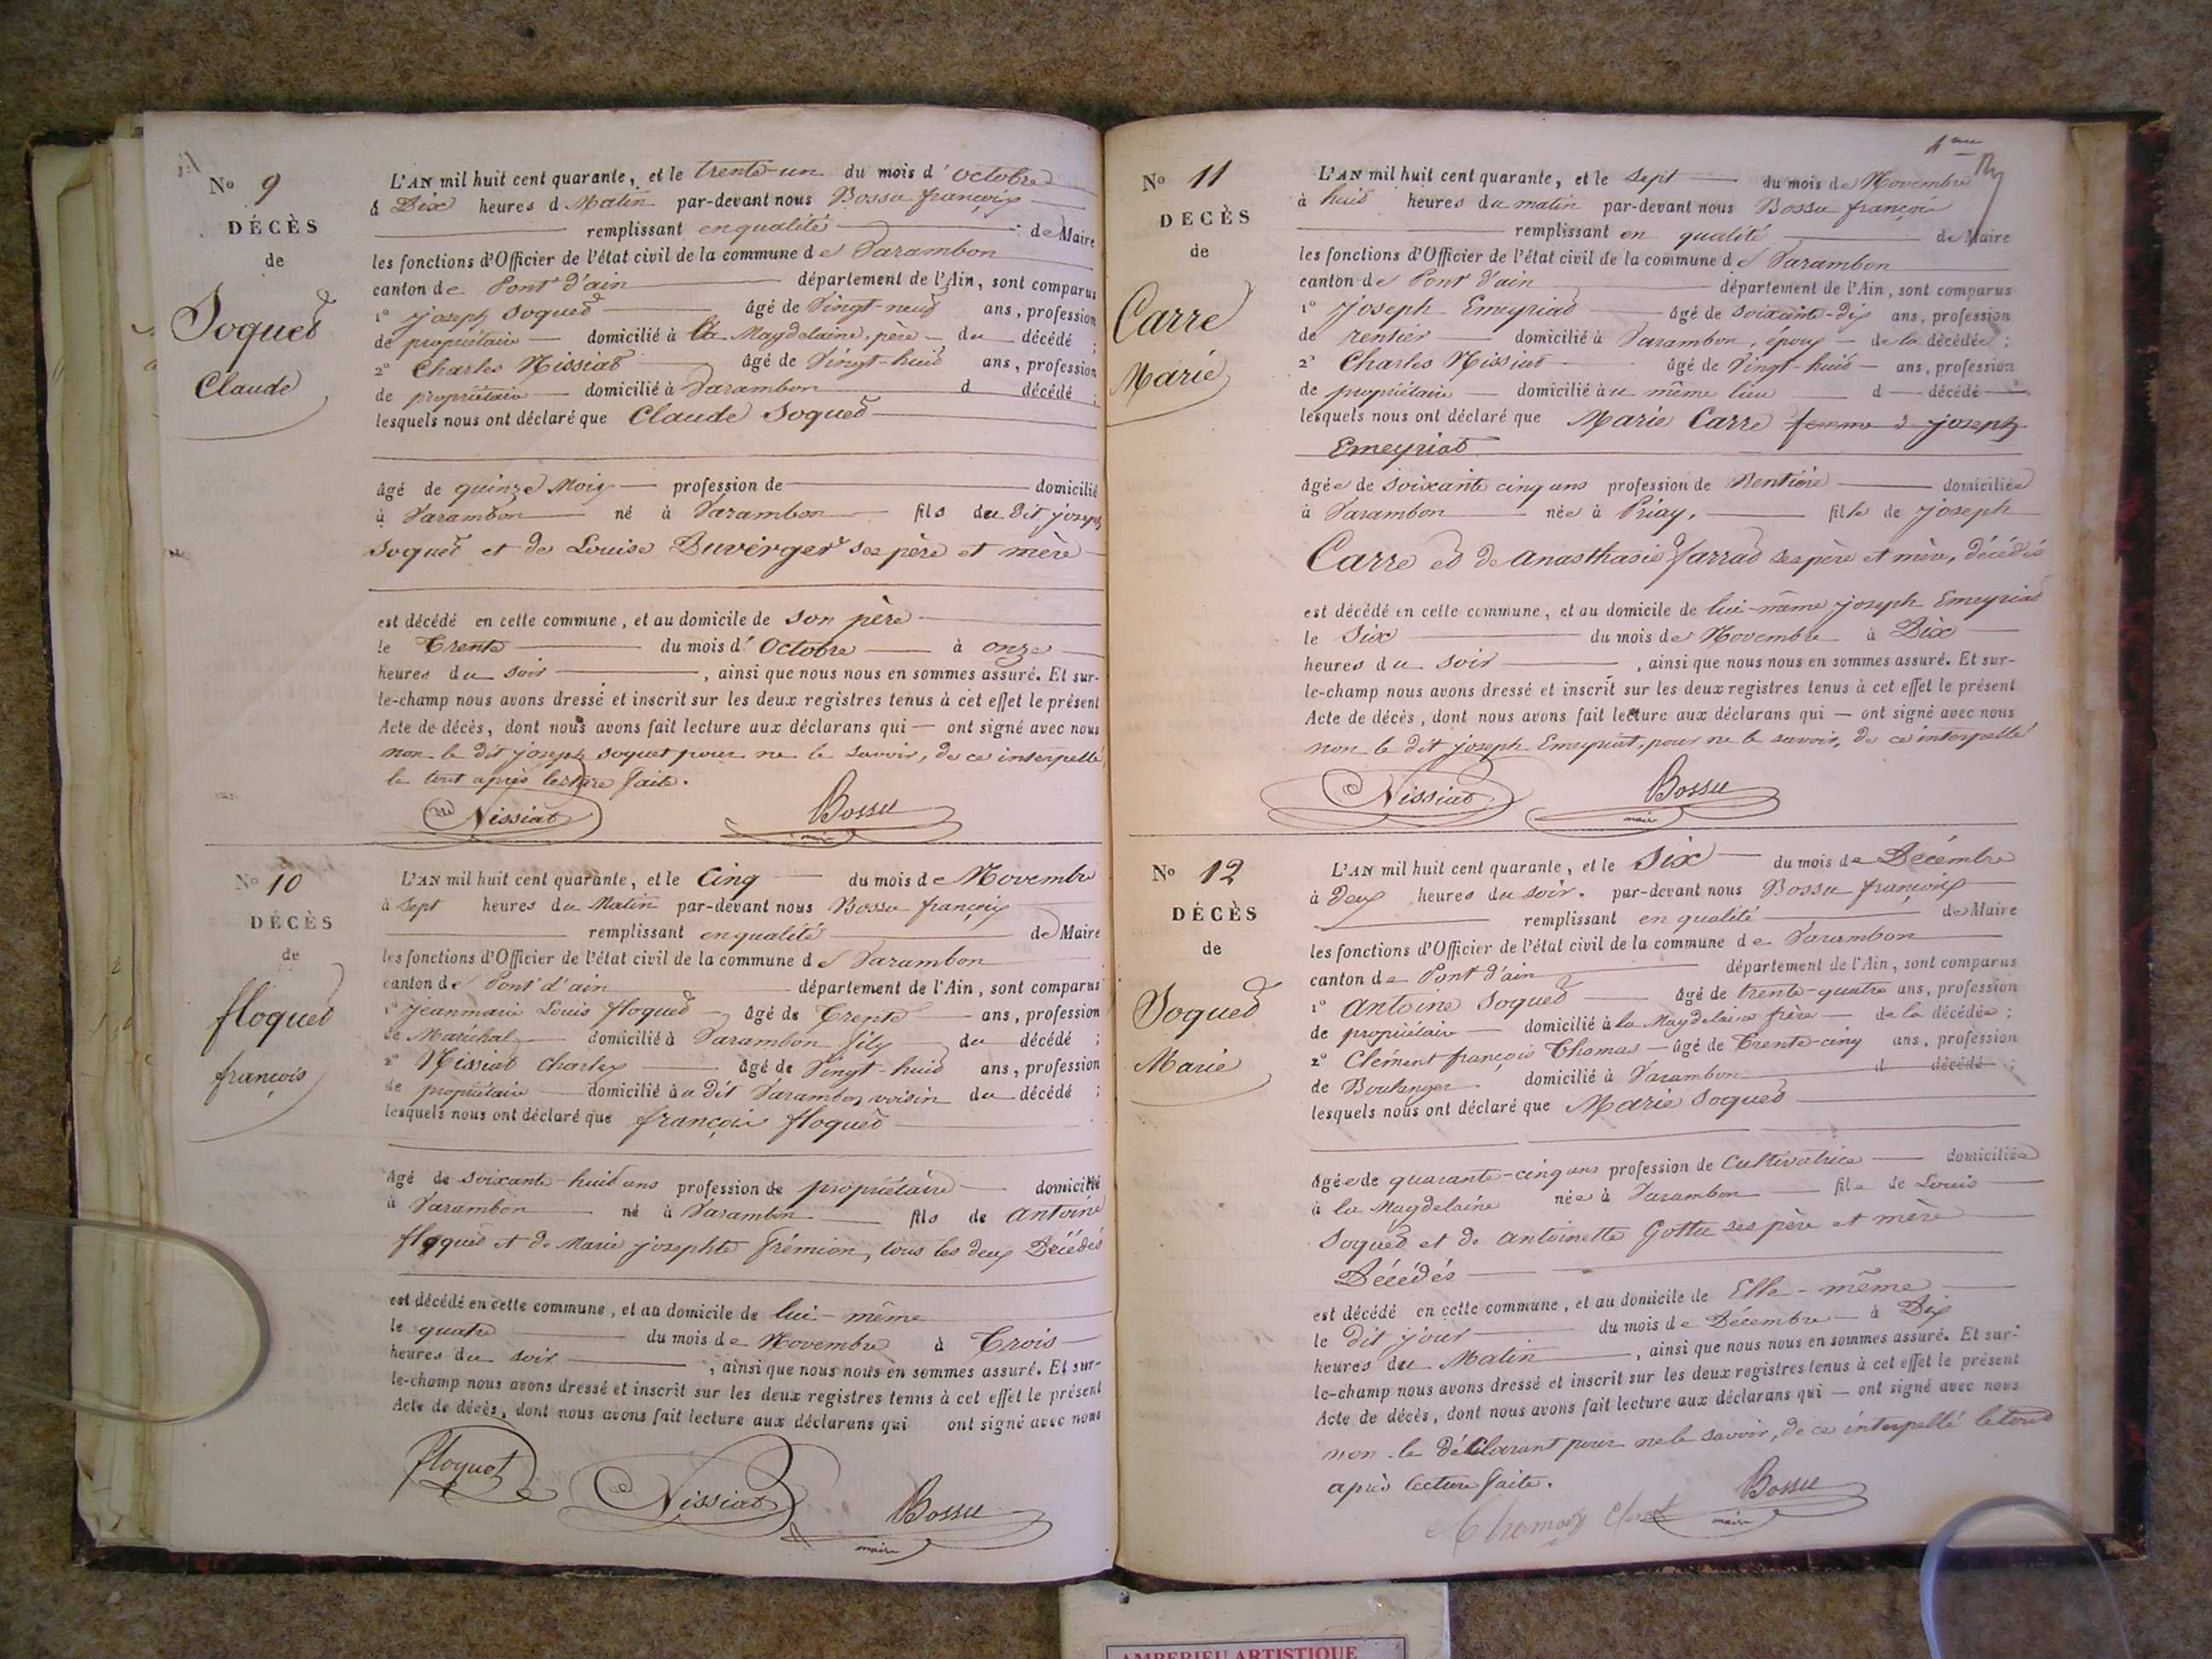 No 9
DÉCÈS
de
Soquet
Claude
L'AN mil huit cent quarante, et le trente-un du mois d'octobre
à Dix heures d Matin par-devant nous Bossu françois
remplissant en qualité de Maire
les fonctions d'Officier de l'état civil de la commune de Varambon
canton de Pont d'ain département de l'Ain, sont comparus
1° joseph Soquet âgé de Vingt-neuf ans, profession
de propriétaire domicilié à la Magdelaine, père du décédé ;
2° Charles Nissiat âgé de Vingt-huit ans, profession
de propriétaire domicilié à Varambon d décédé ;
lesquels nous ont déclaré que Claude Soquet
âgé de quinze Mois profession de domicilié
à Varambon né à Varambon fils du dit joseph
Soquet et de Louise Duverger ses père et mère
est décédé en cette commune, et au domicile de son père
le Trente du mois d'Octobre à onze
heures du soir , ainsi que nous nous en sommes assuré. Et sur-
le-champ nous avons dressé et inscrit sur les deux registres tenus à cet effet le présent
Acte de décès, dont nous avons fait lecture aux déclarans qui — ont signé avec nous
non le dit joseph Soquet pour ne le savoir, de ce interpellé
le tout après lecture faite.
Nissiat Bossu
maire
No 10
DÉCÈS
de
floquet
françois
L'AN mil huit cent quarante, et le Cinq du mois de Novembre
à Sept heures du Matin par-devant nous Bossu françois
remplissant en qualité de Maire
les fonctions d'Officier de l'état civil de la commune de Varambon
canton de Pont d'ain département de l'Ain, sont comparus
1° Jeanmarie Louis floquet âgé de Trente ans, profession
de Maréchal domicilié à Varambon fils du décédé ;
2° Nissiat Charles âgé de Vingt-huit ans, profession
de propriétaire domicilié au dit Varambon, voisin du décédé ;
lesquels nous ont déclaré que françois floquet
âgé de soixante-huit ans profession de propriétaire domicilié
à Varambon né à Varambon fils de Antoine
floquet et de Marie josephte frémion, tous les deux Décédés
est décédé en cette commune, et au domicile de lui-même
le quatre du mois de Novembre à Trois
heures du soir , ainsi que nous nous en sommes assuré. Et sur-
le-champ nous avons dressé et inscrit sur les deux registres tenus à cet effet le présent
Acte de décès, dont nous avons fait lecture aux déclarans qui ont signé avec nous
floquet Nissiat Bossu
maire
No 11
DECÈS
de
Carre
Marie
L'AN mil huit cent quarante, et le Sept du mois de Novembre
à huit heures du matin par-devant nous Bossu françois
remplissant en qualité de Maire
les fonctions d'Officier de l'état civil de la commune de Varambon
canton de Pont d'ain département de l'Ain, sont comparus
1° Joseph Emeyriat âgé de soixante-dix ans, profession
de rentier domicilié à Varambon, époux de la décédée ;
2° Charles Nissiat âgé de Vingt-huit ans, profession
de propriétaire domicilié au même lieu d décédé
lesquels nous ont déclaré que Marie Carre femme de joseph
Emeyriat
âgée de soixante cinq ans profession de Rentière domiciliée
à Varambon née à Priay, fille de joseph
Carre et de Anasthasie farrad ses père et mère, décédés
est décédé en cette commune, et au domicile de lui-même joseph Emeyriat
le Six du mois de Novembre à Dix
heures du soir , ainsi que nous nous en sommes assuré. Et sur-
le-champ nous avons dressé et inscrit sur les deux registres tenus à cet effet le présent
Acte de décès, dont nous avons fait lecture aux déclarans qui — ont signé avec nous
non le dit joseph Emeyriat, pour ne le savoir, de ce interpellé
Nissiat Bossu
maire
No 12
DÉCÈS
de
Soquet
Marie
L'AN mil huit cent quarante, et le Six du mois de Décembre
à deux heures du soir. par-devant nous Bossu françois
remplissant en qualité de Maire
les fonctions d'Officier de l'état civil de la commune de Varambon
canton de Pont d'ain département de l'Ain, sont comparus
1° Antoine Soquet âgé de trente-quatre ans, profession
de propriétaire domicilié à la Magdelaine frère de la décédée ;
2° Clément françois Thomas âgé de Trente-cinq ans, profession
de Boulanger domicilié à Varambon d décédé ;
lesquels nous ont déclaré que Marie Soquet
âgée de quarante-cinq ans profession de Cultivatrice domiciliée
à la Magdelaine née à Varambon fille de Louis
Soquet et de Antoinette Gottu ses père et mère
Décédés
est décédé en cette commune, et au domicile de Elle-même
le dit jour du mois de Décembre à Dix
heures du Matin , ainsi que nous nous en sommes assuré. Et sur-
le-champ nous avons dressé et inscrit sur les deux registres tenus à cet effet le présent
Acte de décès, dont nous avons fait lecture aux déclarans qui — ont signé avec nous
non le déclarant pour ne le savoir, de ce interpellé le tout
après lecture faite.
Bossu
maire
AMBERIEU ARTISTIQUE